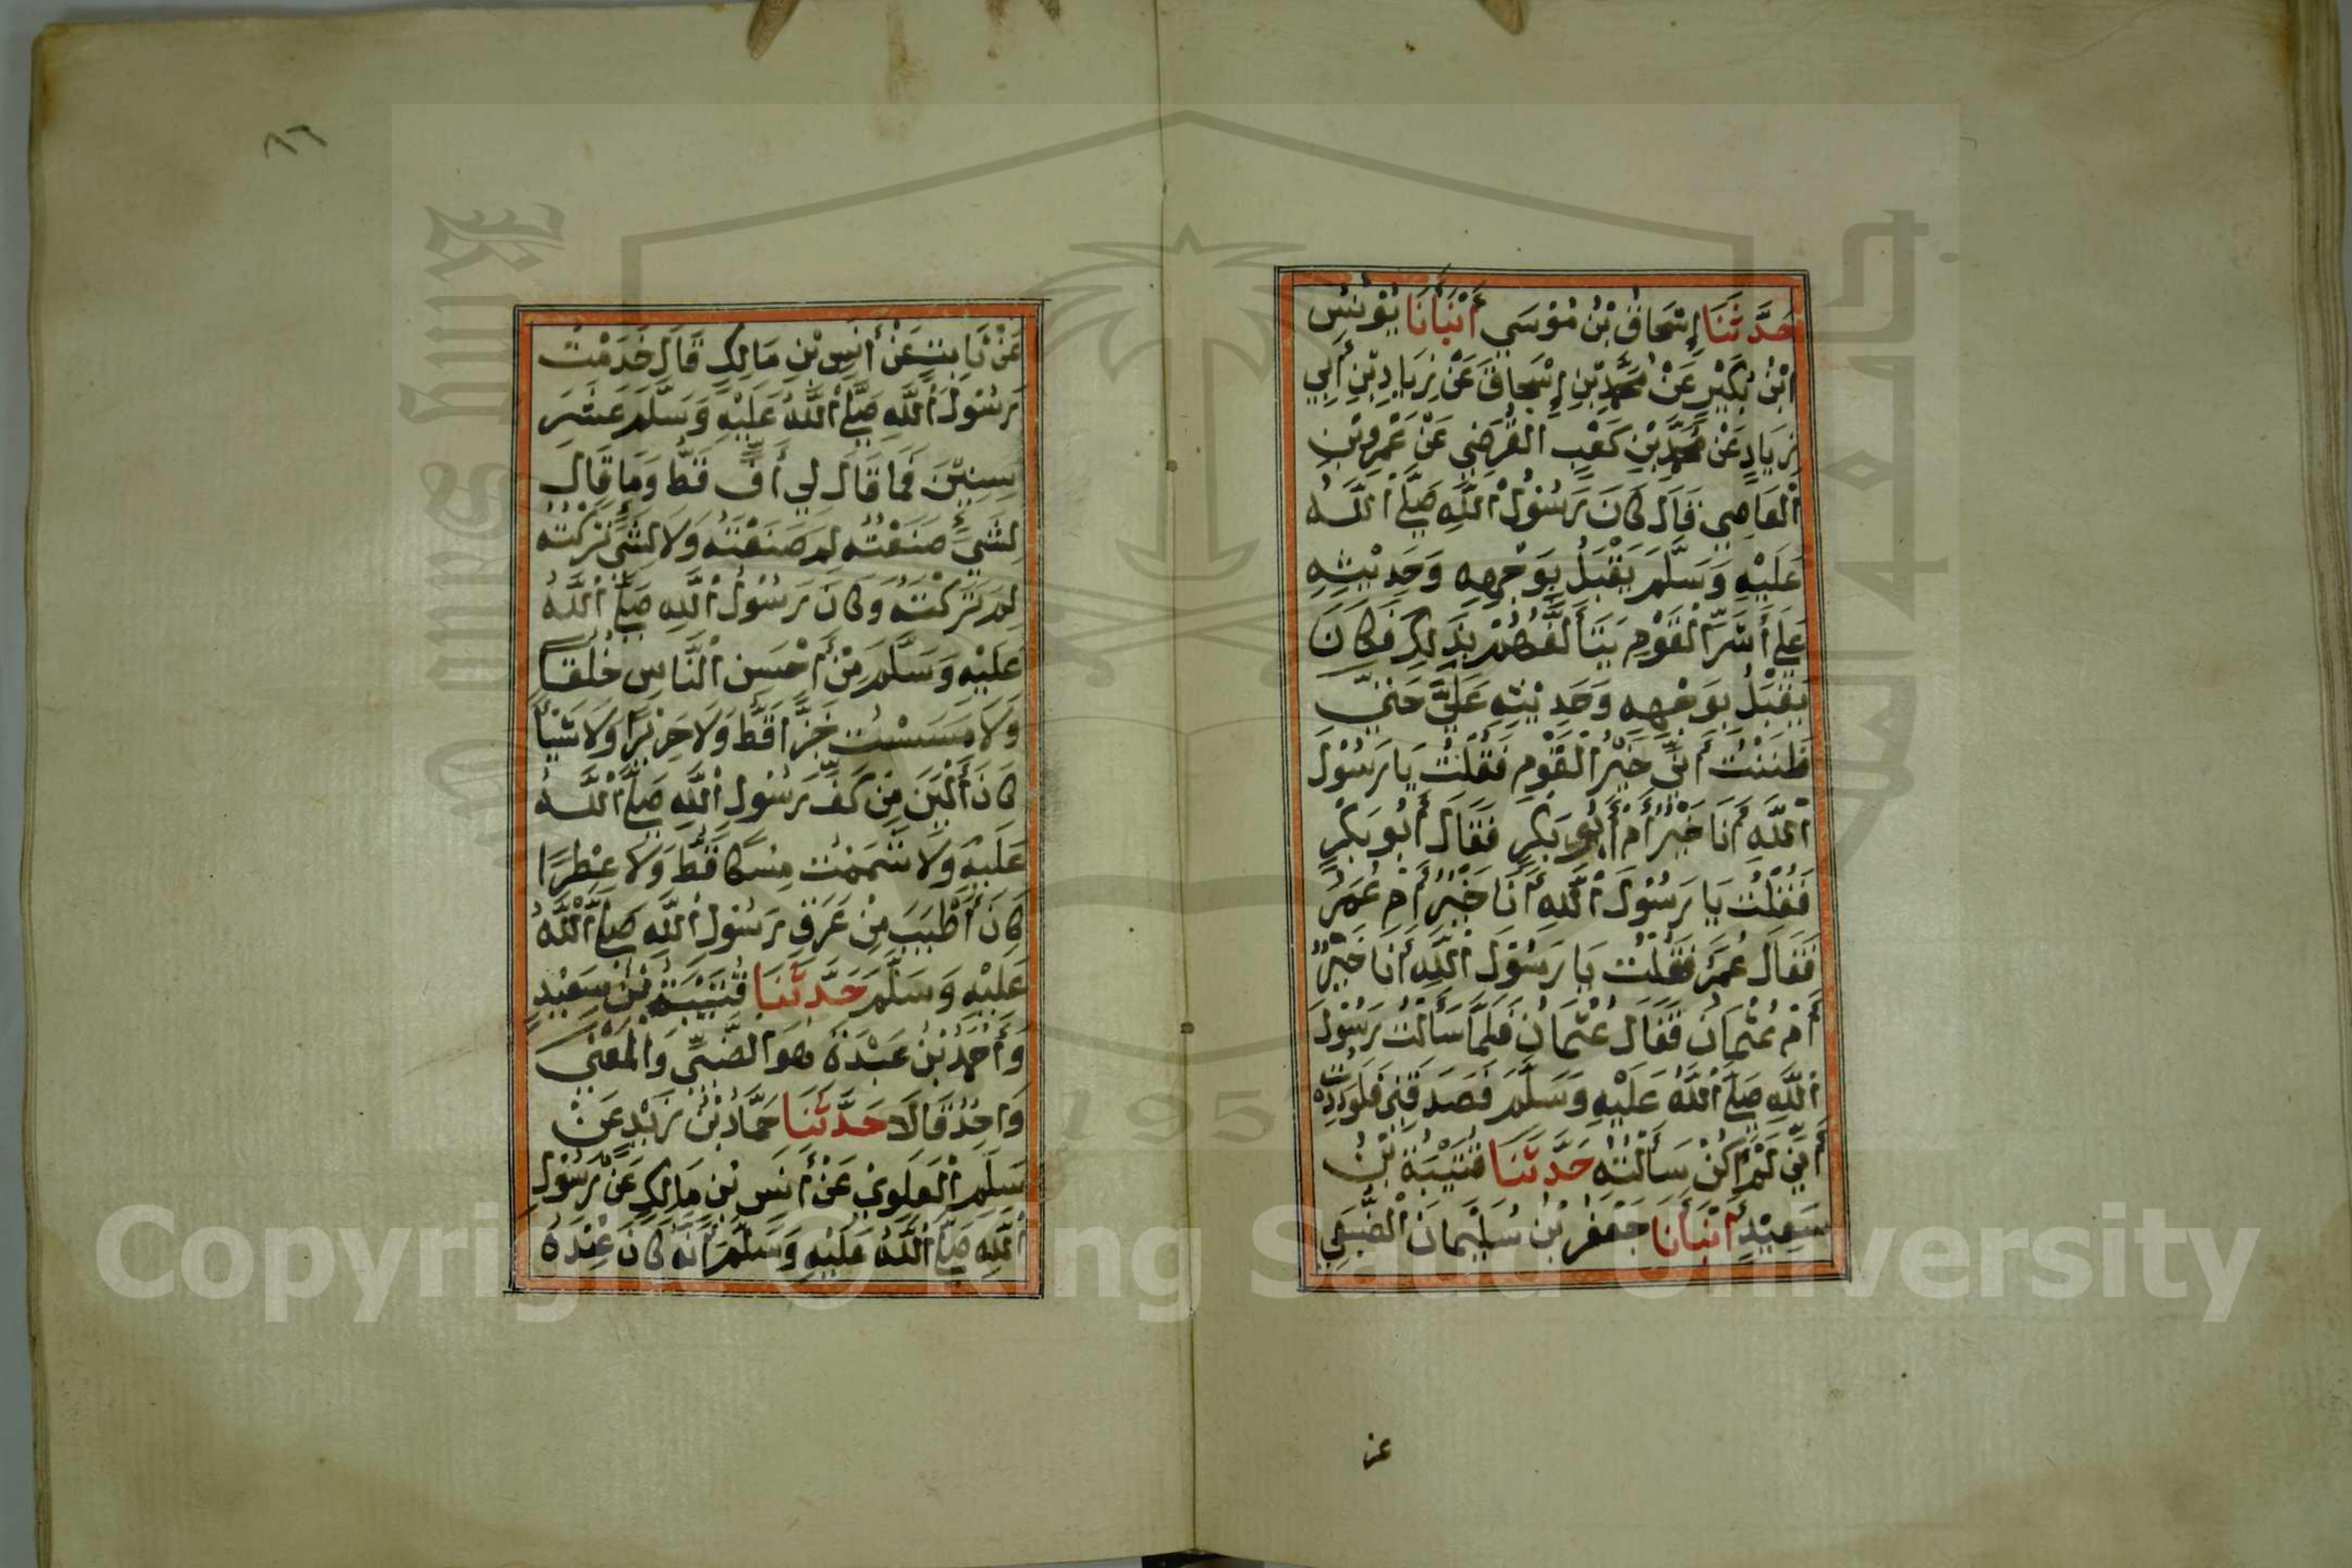 حَدَّثَنَا إِسْحَاقُ بْنُ مُوْسَي أَنْبَأَنَا يُوْنُسُ
ابْنُ بُكَيْرٍ عَنْ مُحَمَّدِ بْنِ إِسْحَاقَ عَنْ زِيَادِ بْنِ أَبِي
زِيَادٍ عَنْ مُحَمَّدِ بْنِ كَعْبٍ القُرَضِي عَنْ عَمْرِو بْنِ
الْعَاصِي قَالَ كَانَ رَسُوْلُ اللَّهِ صَلَّي اللَّهُ
عَلَيْهِ وَسَلَّمَ يَقْبَلُ بِوَجْهِهِ وَحَدِيْثِهِ
عَلَي أَشَرِّ الْقَوْمِ يَتَأَلَّفُهُمْ بِذَلِكَ فَكَانَ
يَقْبَلُ بِوَجْهِهِ وَحَدِيْثِهِ عَلَيَّ حَتَّي
ظَنَنْتُ أَنِّي خَيْرُ الْقَوْمِ فَقُلْتُ يَا رَسُوْلَ
اللَّهِ أَنَا خَيْرٌ أَمْ أَبُو بَكْرٍ فَقَالَ أَبُو بَكْرٍ
فَقُلْتُ يَا رَسُوْلَ اللَّهِ أَنَا خَيْرٌ أَمْ عُمَرُ
فَقَالَ عُمَرُ فَقُلْتُ يَا رَسُوْلَ اللَّهِ أَنَا خَيْرٌ
أَمْ عُثْمَانُ فَقَالَ عُثْمَانُ فَلَمَّا سَأَلْتُ رَسُوْلَ
اللَّهِ صَلَّي اللَّهُ عَلَيْهِ وَسَلَّمَ فَصَدَقَنِي فَلَوَدِدْتُ
أَنِّي لَمْ أَكُنْ سَأَلْتُهُ حَدَّثَنَا قُتَيْبَةُ بْنُ
سَعِيْدٍ أَنْبَأَنَا جَعْفَرُ بْنُ سُلَيْمَانَ الضُّبَعِي
عن
٨٦
عَنْ ثَابِتٍ عَنْ أَنَسِ بْنِ مَالِكٍ قَالَ خَدَمْتُ
رَسُوْلَ اللَّهِ صَلَّي اللَّهُ عَلَيْهِ وَسَلَّمَ عَشَرَ
سِنِيْنَ فَمَا قَالَ لِي أُفٍّ قَطُّ وَمَا قَالَ
لِشَيْءٍ صَنَعْتُهُ لِمَ صَنَعْتَهُ وَلَا لِشَيْءٍ تَرَكْتُهُ
لِمَ تَرَكْتَهُ وَكَانَ رَسُوْلُ اللَّهِ صَلَّي اللَّهُ
عَلَيْهِ وَسَلَّمَ مِنْ أَحْسَنِ النَّاسِ خُلُقًا
وَلَا مَسَسْتُ خَزًّا قَطُّ وَلَا حَرِيْرًا وَلَا شَيْأً
كَانَ أَلْيَنَ مِنْ كَفِّ رَسُوْلِ اللَّهِ صَلَّي اللَّهُ
عَلَيْهِ وَلَا شَمَمْتُ مِسْكًا قَطُّ وَلَا عِطْرًا
كَانَ أَطْيَبَ مِنْ عَرَقِ رَسُوْلِ اللَّهِ صَلَّي اللَّهُ
عَلَيْهِ وَسَلَّمَ حَدَّثَنَا قُتَيْبَةُ بْنُ سَعِيْدٍ
وَأَحْمَدُ بْنُ عَبْدَةَ هُوَ الضَّبِّيُّ وَالْمَعْنَي
وَاحِدٌ قَالَا حَدَّثَنَا حَمَّادُ بْنُ زَيْدٍ عَنْ
سَلَمِ الْعَلَوِي عَنْ أَنَسِ بْنِ مَالِكٍ عَنْ رَسُوْلِ
اللَّهِ صَلَّي اللَّهُ عَلَيْهِ وَسَلَّمَ أَنَّهُ كَانَ عِنْدَهُ
King Saud University
جامعة الملك سعود
1957
Copyright © King Saud University